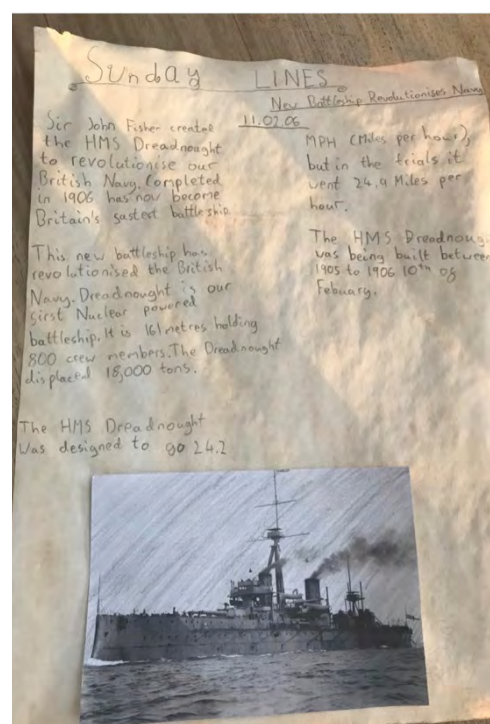 Sunday LINES
New Battleship Revolutionises Navy
11.02.06
Sir John Fisher created
the HMS Dreadnought
to revolutionise our
British Navy. Completed
in 1906 has now become
Britain's fastest battleship
This new battleship has
revolutionised the British
Navy. Dreadnought is our
first Nuclear powered
battleship. It is 161 metres holding
800 crew members. The Dreadnought
displaced 18,000 tons.
The HMS Dreadnought
Was designed to go 24.2
MPH (Miles per hour),
but in the trials it
went 24.9 Miles per
hour.
The HMS Dreadnough
was being built between
1905 to 1906 10th of
Febuary.